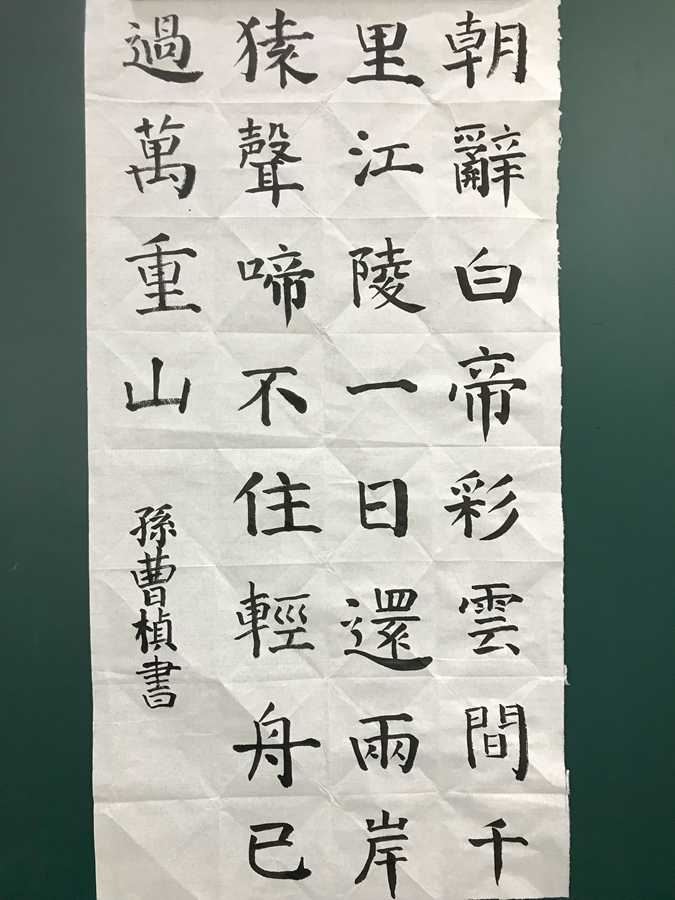 朝辭白帝彩雲間千
里江陵一日還兩岸
猿聲啼不住輕舟已
過萬重山
孫曹楨書